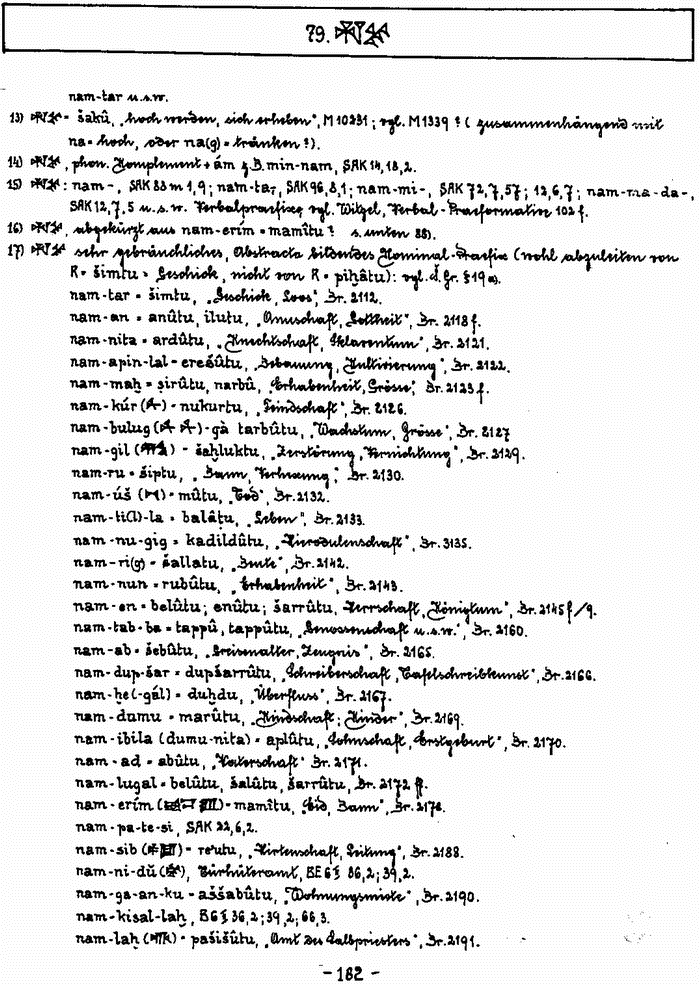 79. 𒉆
nam-tar u.s.w.
13) 𒉆 = šakû, „hoch werden, sich erheben", M 10231; vgl. M 1339? (zusammenhängend mit
na = hoch, oder na(g) = tränken?).
14) 𒉆, phon. Komplement + ám z.B. min-nam, SAK 14,18,2.
15) 𒉆: nam-, SAK 88 m 1,9; nam-ta₇, SAK 96,8,1; nam-mi-, SAK 72,7,57; 12,6,7; nam-ma-da-,
SAK 12,7,5 u.s.w. Verbalpraefixe, vgl. Witzel, Verbal-Praeformative 102 f.
16) 𒉆, abgekürzt aus nam-erím = mamîtu? s. unten 88).
17) 𒉆 sehr gebräuchliches, Abstracta bildendes Nominal-Praefix (wohl abzuleiten von
R = šimtu = Geschick, nicht von R = piḫâtu): vgl. d. Gr. § 19 a).
nam-tar = šimtu, „Geschick, Loos", Br. 2112.
nam-an = anûtu, ilutu, „Anuschaft, Gottheit", Br. 2118 f.
nam-nita = ardûtu, „Knechtschaft, Sklaventum", Br. 2121.
nam-apin-lal = erešûtu, „Bebauung, Kultivierung", Br. 2122.
nam-maḫ = ṣirûtu, narbû, „Erhabenheit, Grösse", Br. 2123 f.
nam-kúr = nukurtu, „Feindschaft", Br. 2126.
nam-bulug-gà tarbûtu, „Wachstum, Grösse", Br. 2127
nam-gil = šaḫluktu, „Zerstörung, Vernichtung", Br. 2129.
nam-ru = šiptu, „Bann, Verhexung", Br. 2130.
nam-úš = mûtu, „Tod", Br. 2132.
nam-ti(l)-la = balâṭu, „Leben", Br. 2133.
nam-nu-gig = kadildûtu, „Hierodulenschaft", Br. 3135.
nam-ri(g) = šallatu, „Beute", Br. 2142.
nam-nun = rubûtu, „Erhabenheit", Br. 2143.
nam-en = belûtu; enûtu; šarrûtu, „Herrschaft, Königtum", Br. 2145 f/9.
nam-tab-ba = tappû, tappûtu, „Genossenschaft u.s.w.", Br. 2160.
nam-ab = šebûtu, „Greisenalter, Zeugnis", Br. 2165.
nam-dup-šar = dupšarrûtu, „Schreiberschaft, Tafelschreibkunst", Br. 2166.
nam-ḫe(-gál) = duḫdu, „Überfluss", Br. 2167.
nam-dumu = marûtu, „Kindschaft; Kinder", Br. 2169.
nam-ibila (dumu-nita) = aplûtu, „Sohnschaft, Erstgeburt", Br. 2170.
nam-ad = abûtu, „Vaterschaft" Br. 2171.
nam-lugal = belûtu, šalûtu, šarrûtu, Br. 2172 ff.
nam-erím = mamîtu, „Eid, Bann", Br. 2178.
nam-pa-te-si, SAK 22,6,2.
nam-sib = re'utu, „Hirtenschaft, Leitung", Br. 2188.
nam-ni-dŭ, Türhüteramt, BE 6 I 36,2; 39,2.
nam-ga-an-ku = aššabûtu, „Wohnungsmiete", Br. 2190.
nam-kisal-laḫ, B 6 I 36,2; 39,2; 66,3.
nam-laḫ = pašišûtu, „Amt des Salbpriesters", Br. 2191.
- 182 -